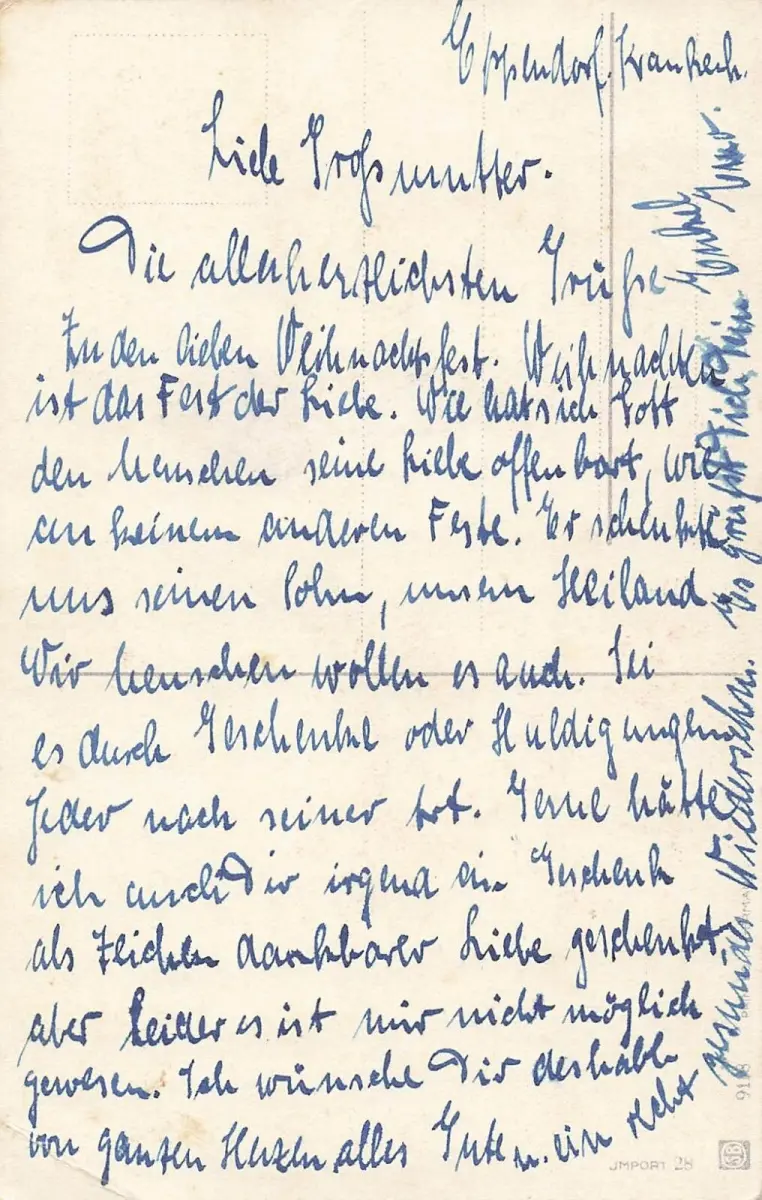 Eppendorf. Krankech.
Liebe Großmutter.
Die allerherzlichsten Grüße
Zu den lieben Weihnachtsfest. Weihnachten
ist das Fest der Liebe. Wie hat sich Gott
den Menschen seine Liebe offenbart, wie
an keinem anderen Feste. Er schenkte
uns seinen Sohn, unsern Heiland.
Wir Menschen wollen es auch. Sei
es durch Geschenke oder Huldigungen
Jeder nach seiner Art. Gerne hätte
ich auch Dir irgend ein Geschenk
als Zeichen dankbarer Liebe geschenkt,
aber Leider es ist mir nicht möglich
gewesen. Ich wünsche Dir deshalb
von ganzen Herzen alles Gute u. ein recht
gesundes Wiedersehn. Es grüßt Dich, Dein
Enkel
JMPORT 28